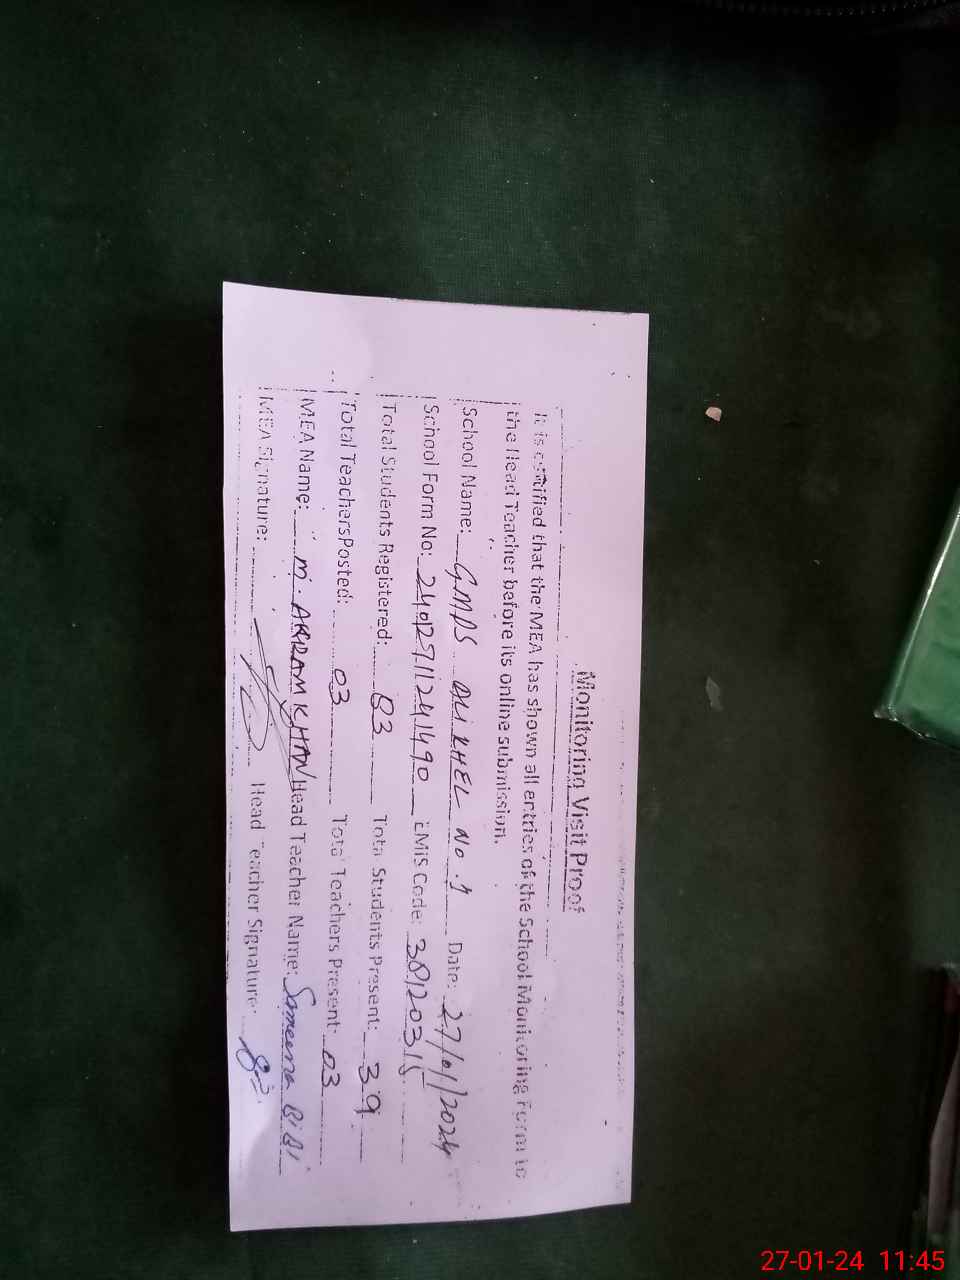 Monitoring Visit Proof
It is certified that the MEA has shown all entries of the School Monitoring Form to
the Head Teacher before its online submission.
School Name: GMPS ALI KHEL No.1 Date: 27/01/2024
School Form No: 24012911241490 EMIS Code: 38120315
Total Students Registered: 83 Total Students Present: 39
Total Teachers Posted: 03 Total Teachers Present: 03
MEA Name: M. AKRAM KHAN Head Teacher Name: Sameena BiBi
MEA Signature: Head Teacher Signature:
27-01-24 11:45